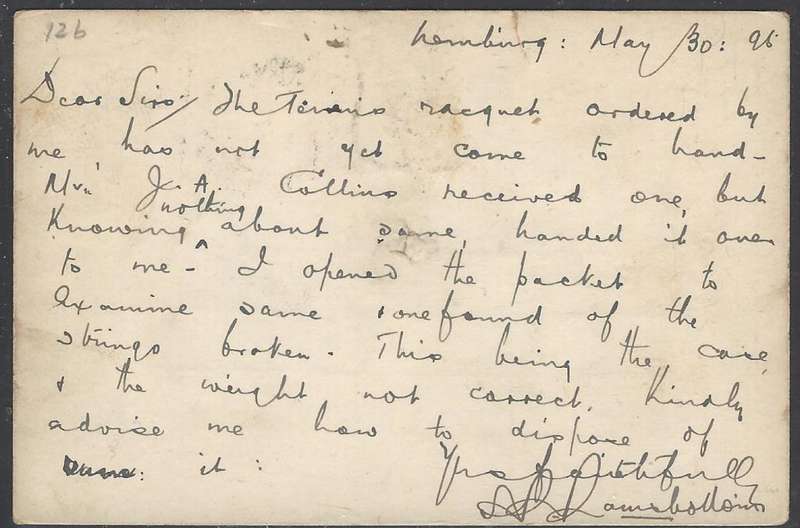 126
Lemburg: May 30: 95
Dear Sirs/ The Tennis racquet ordered by
me, has not yet come to hand -
Mr. J. A. Collins received one, but
Knowing nothing about same, handed it over
to me - I opened the packet to
Examine same & found one of the
strings broken. This being the case,
& the weight not correct, Kindly
advise me how to dispose of
it:
Yrs faithfully
Ramsbottom